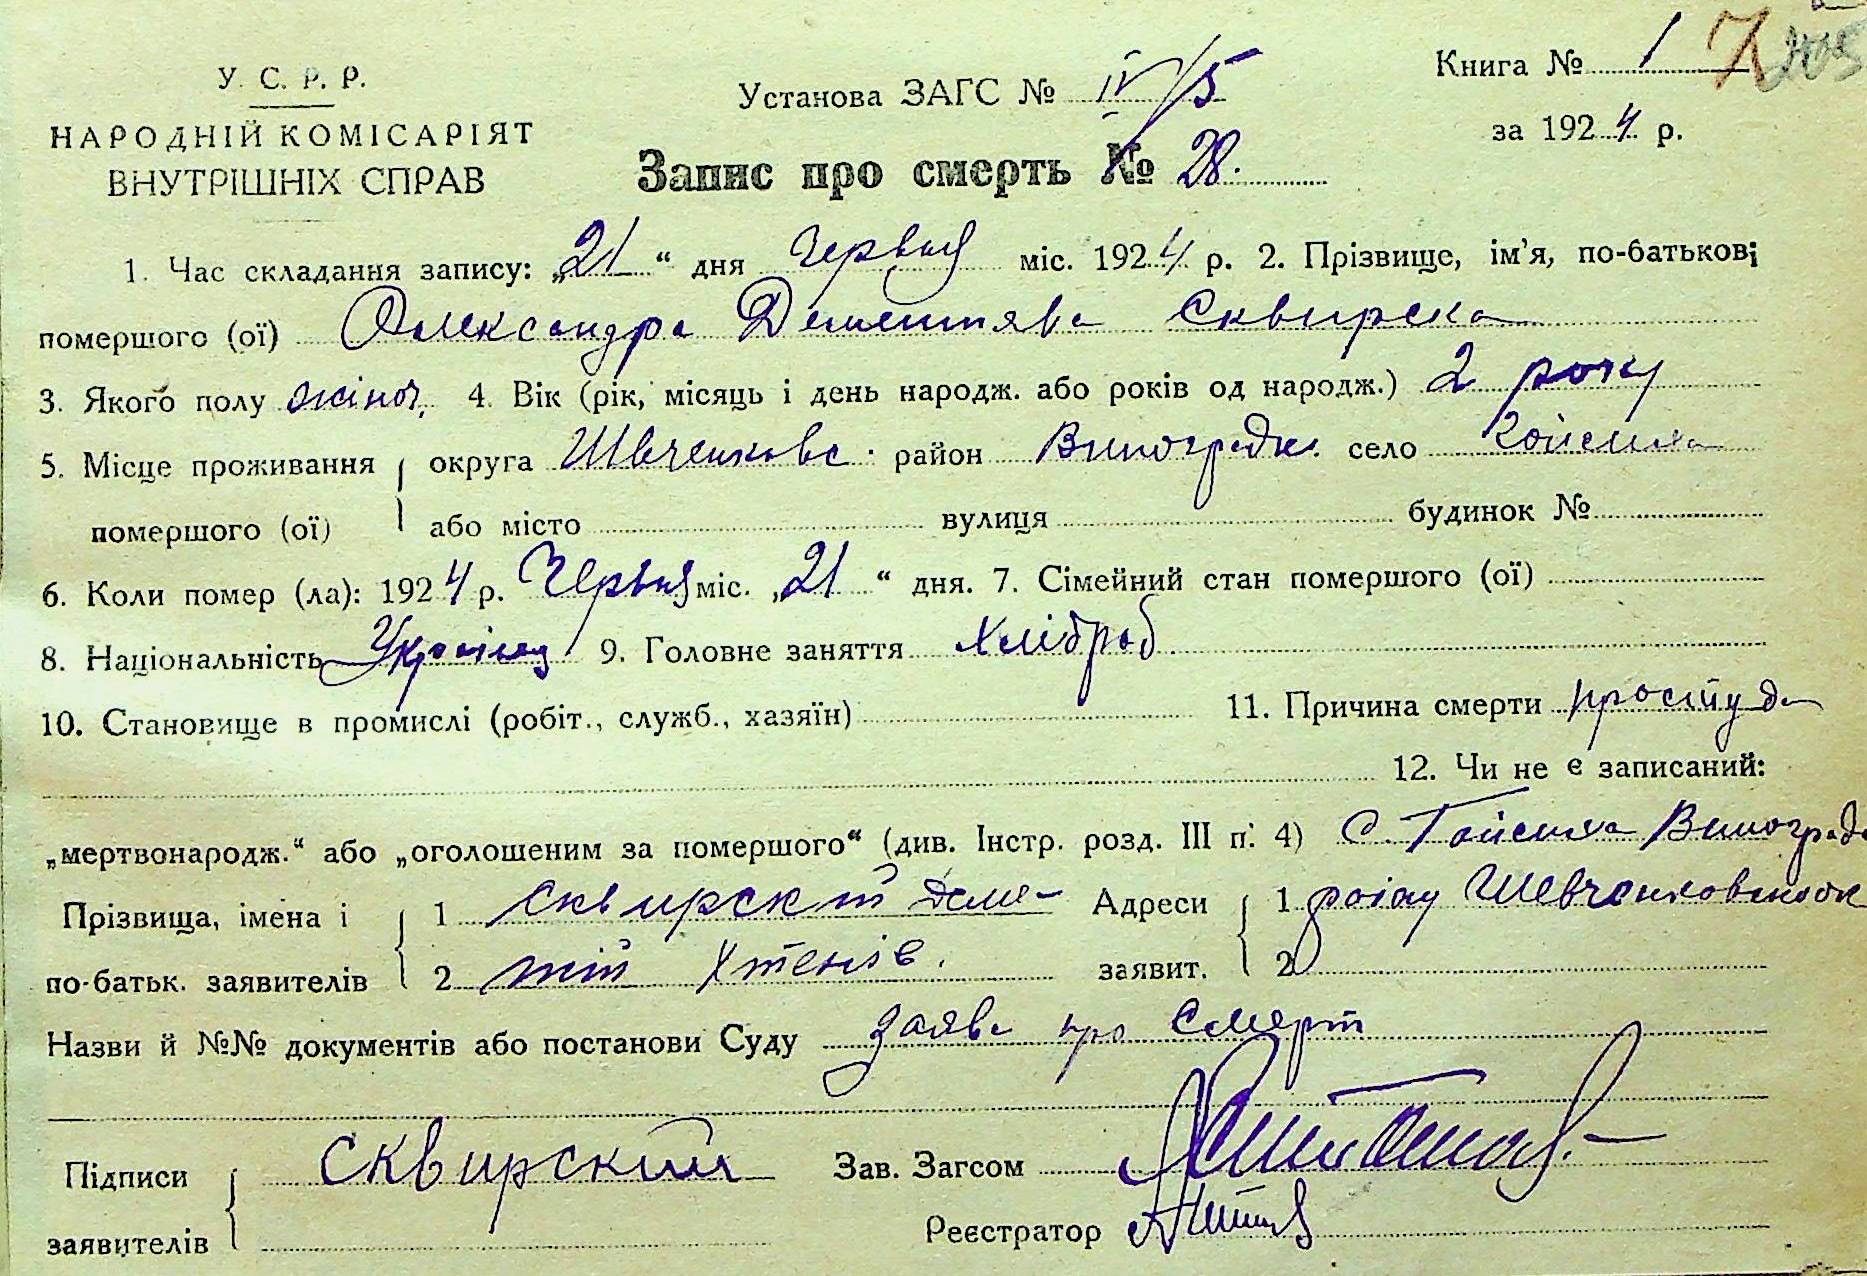 У. С. Р. Р.
НАРОДНІЙ КОМІСАРІЯТ
ВНУТРІШНІХ СПРАВ
Установа ЗАГС № IV/5
Книга № 1 7
за 1924 р.
Запис про смерть № 28.
1. Час складання запису: „21“ дня Червня міс. 1924 р. 2. Прізвище, ім'я, по-батькові
помершого (ої) Олександра Дементява Сквирска
3. Якого полу жіноч. 4. Вік (рік, місяць і день народж. або років од народж.) 2 року
5. Місце проживання округа Шевченковс. район Виноградк. село
помершого (ої) або місто вулиця будинок №
6. Коли помер (ла): 1924 р. Червня міс. „21“ дня. 7. Сімейний стан помершого (ої)
8. Національність Українц 9. Головне заняття Хліброб
10. Становище в промислі (робіт., служб., хазяїн) 11. Причина смерти простуда
12. Чи не є записаний:
„мертвонародж.“ або „оголошеним за помершого“ (див. Інстр. розд. III п. 4) С.
Прізвища, імена і 1 Сквирский Деме- Адреси 1
по-батьк. заявителів 2 тій заявит. 2
Назви й №№ документів або постанови Суду заява про смерт
Підписи Сквирский Зав. Загсом
заявителів Реєстратор